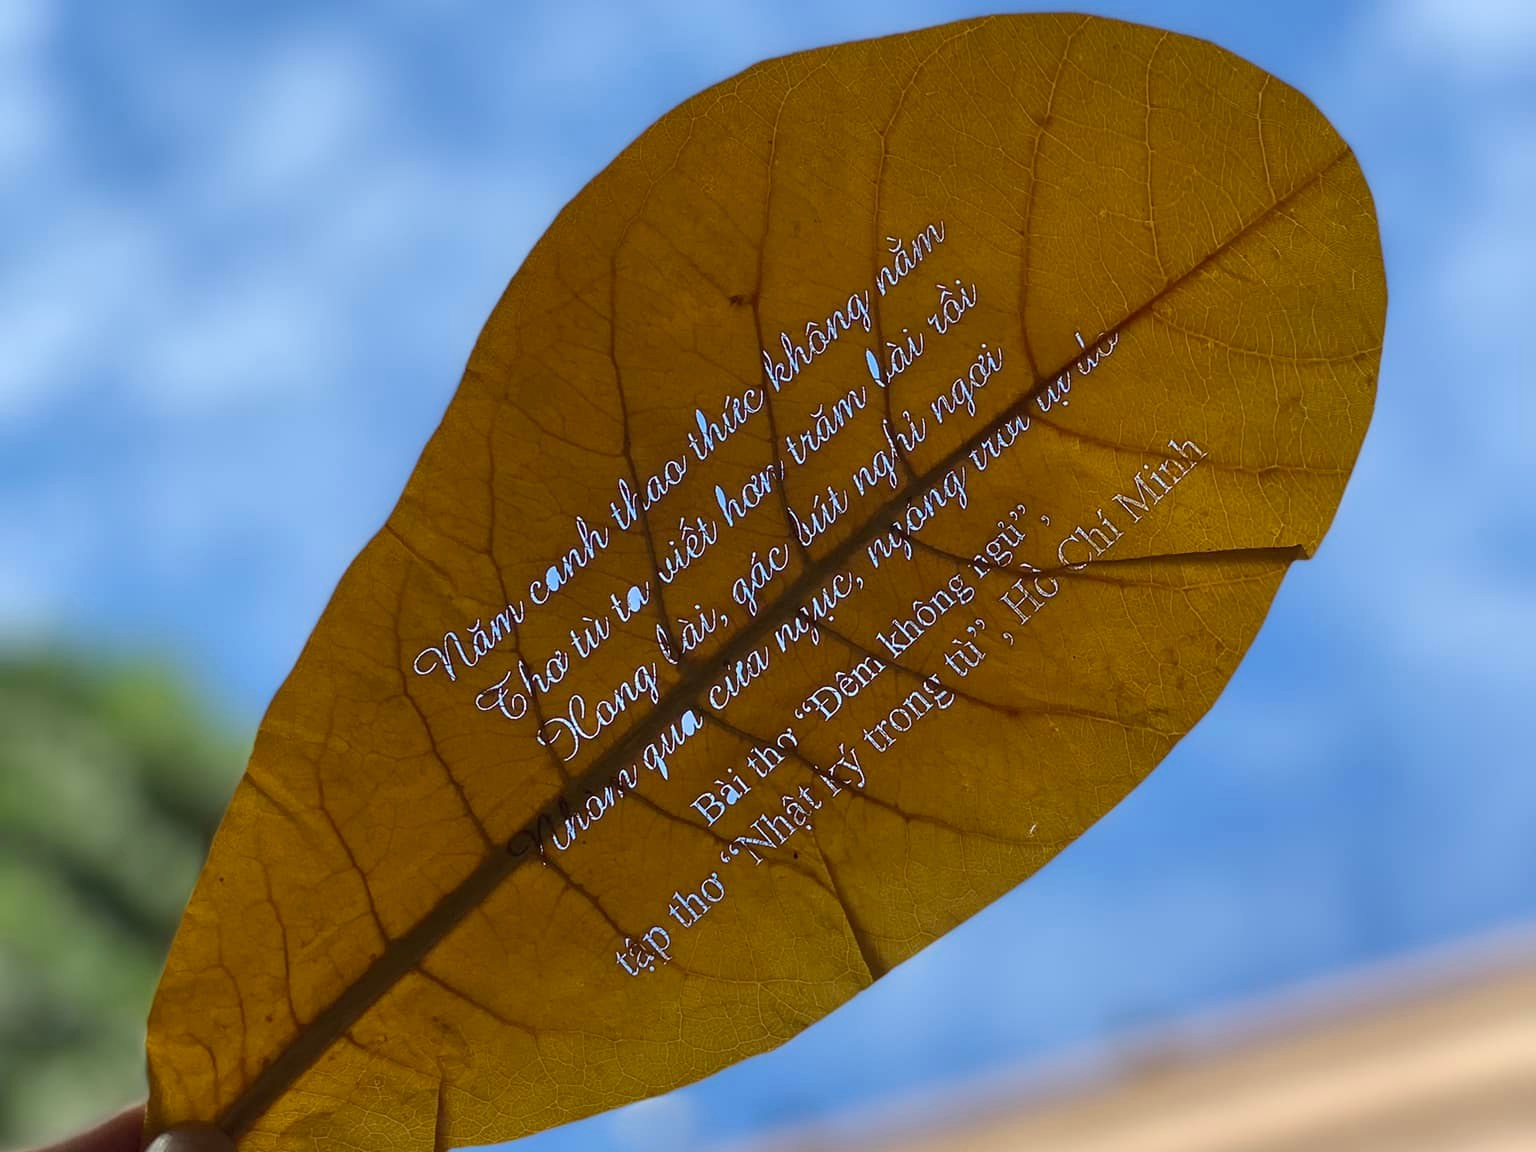 Năm canh thao thức không nằm
Thơ tù ta viết hơn trăm bài rồi
Xong bài, gác bút nghỉ ngơi
Nhòm qua cửa ngục, ngóng trời tự do
Bài thơ “Đêm không ngủ”,
tập thơ “Nhật ký trong tù”, Hồ Chí Minh